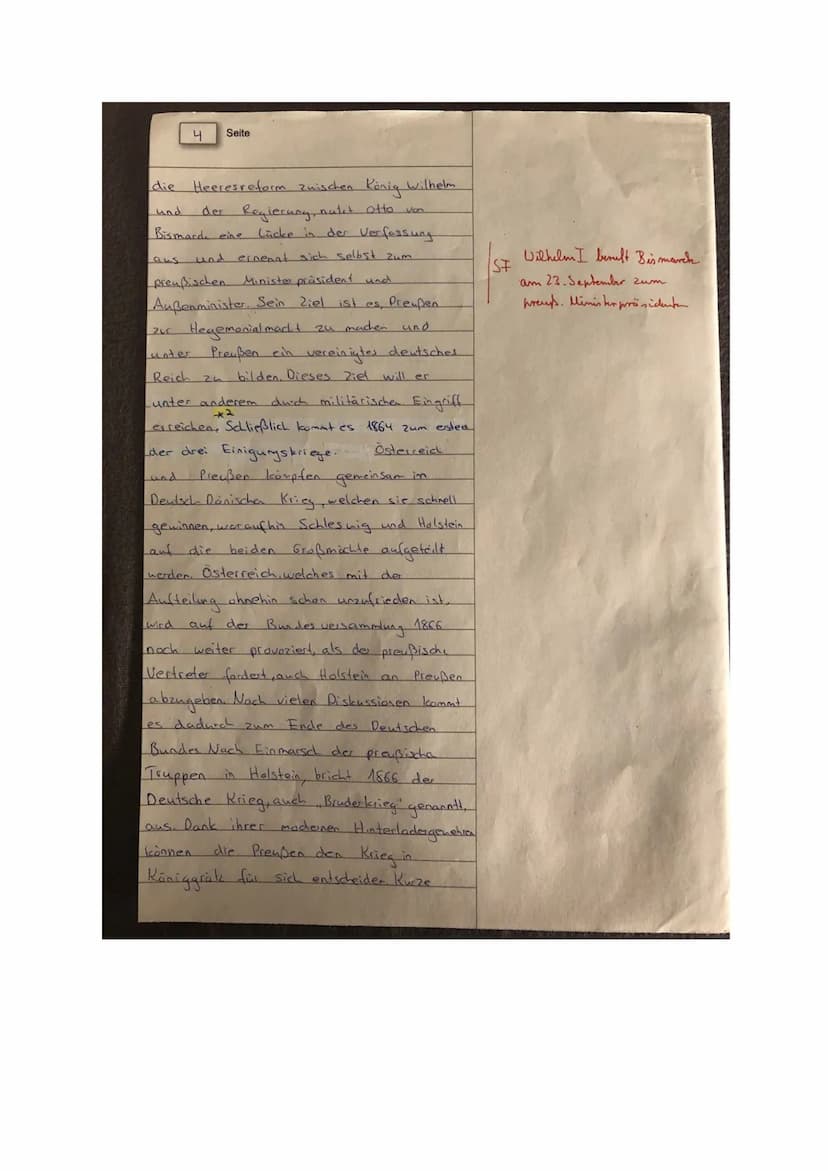 4 Seite
die Heeresreform zwischen König Wilhelm
und der Regierung, nutzt Otto von
Bismarck eine Lücke in der Verfassung
aus und ernennt sich selbst zum
preußischen Ministerpräsident und
Außenminister. Sein Ziel ist es, Preußen
zur Hegemonialmacht zu machen und
unter Preußen ein vereinigtes deutsches
Reich zu bilden. Dieses Ziel will er
unter anderem durch militärischen Eingriff
*2
erreichen. Schließlich kommt es 1864 zum ersten
der drei Einigungskriege. Österreich
und Preußen kämpfen gemeinsam im
Deutsch-Dänischen Krieg, welchen sie schnell
gewinnen, woraufhin Schleswig und Holstein
auf die beiden Großmächte aufgeteilt
werden. Österreich, welches mit der
Aufteilung ohnehin schon unzufrieden ist,
wird auf der Bundesversammlung 1866
noch weiter provoziert, als der preußische
Vertreter fordert, auch Holstein an Preußen
abzugeben. Nach vielen Diskussionen kommt
es dadurch zum Ende des Deutschen
Bundes. Nach Einmarsch der preußischen
Truppen in Holstein, bricht 1866 der
Deutsche Krieg, auch „Bruderkrieg" genannt,
aus. Dank ihrer modernen Hinterladergewehren
können die Preußen den Krieg in
Königgrätz für sich entscheiden. Kurze
Sf Wilhelm I beruft Bismarck
am 23. September zum
preuß. Ministerpräsidenten